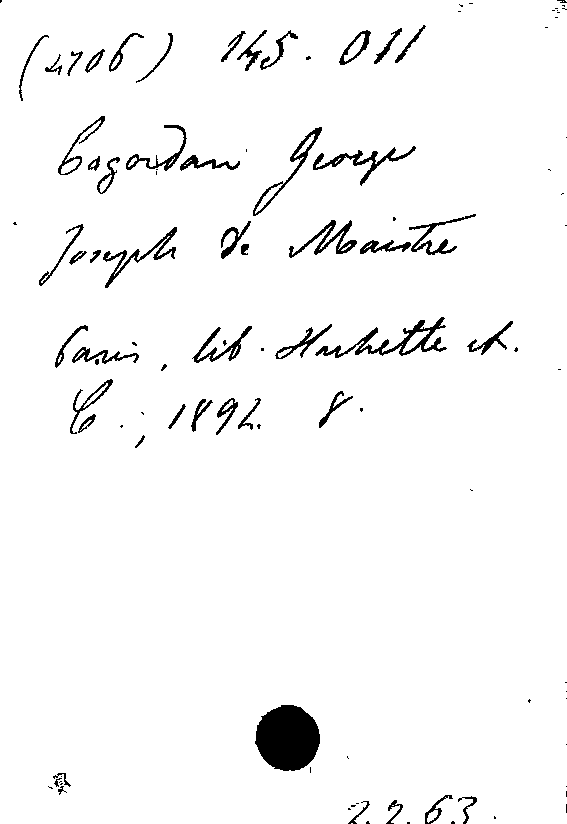 (4706) 145.011
Cogordan George
Joseph de Maistre
Paris, lib. Hachette et.
C.; 1892. 8.
2.2.63.